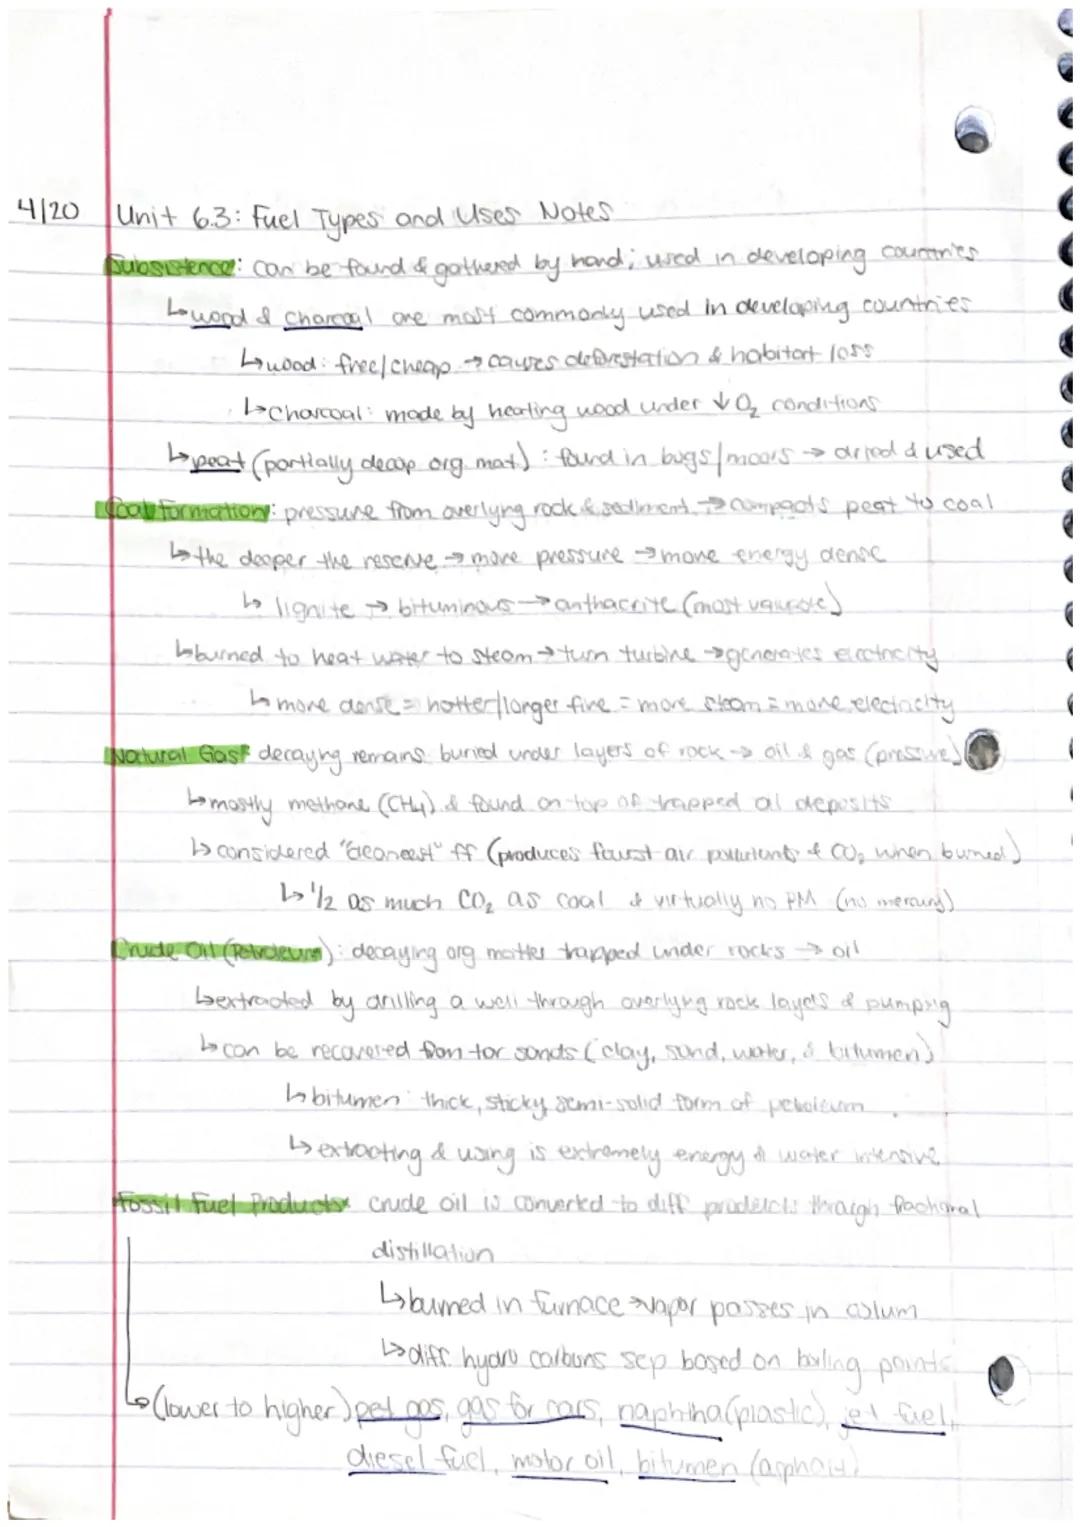 4/20 Unit 6.3: Fuel Types and Uses Notes
Subsistence: can be found & gathered by hand; used in developing countries
↳ wood & charcoal are most commonly used in developing countries
↳ wood: free/cheap → causes deforestation & habitat loss
↳ charcoal: made by heating wood under ↓ O₂ conditions
↳ peat (partially decop org. mat.): found in bogs/moors → dried & used
Coal Formation: pressure from overlyng rock & sediment → compacts peat to coal
↳ the deeper the reserve → more pressure → more energy dense
↳ lignite → bituminous → anthacrite (most valuable)
↳ burned to heat water to steam → turn turbine → generates electricity
↳ more dense = hotter/longer fire = more steam = more electricity
Natural Gas: decayng remains buried under layers of rock → oil & gas (pressure)
↳ mostly methane (CH₄) & found on top of trapped oil deposits
↳ considered "cleaneest" ff (produces fewest air pollutants & CO₂ when burned)
↳ 1/2 as much CO₂ as coal & virtually no PM (no mercury)
Crude Oil (Petroleum): decaying org matter trapped under rocks → oil
↳ extracted by drilling a well through overlyng rock layers & pumping
↳ can be recovered from tar sands (clay, sand, water, & bitumen)
↳ bitumen: thick, sticky, semi-solid form of petroleum
↳ extracting & using is extremely energy & water intensive
Fossil Fuel Products: crude oil is converted to diff products through fractional
distillation
↳ burned in furnace → vapor passes in colum
↳ diff. hydro carbons sep based on boiling points
↳ (lower to higher) pet gas, gas for cars, naphtha (plastic), jet fuel,
diesel fuel, motor oil, bitumen (asphalt)